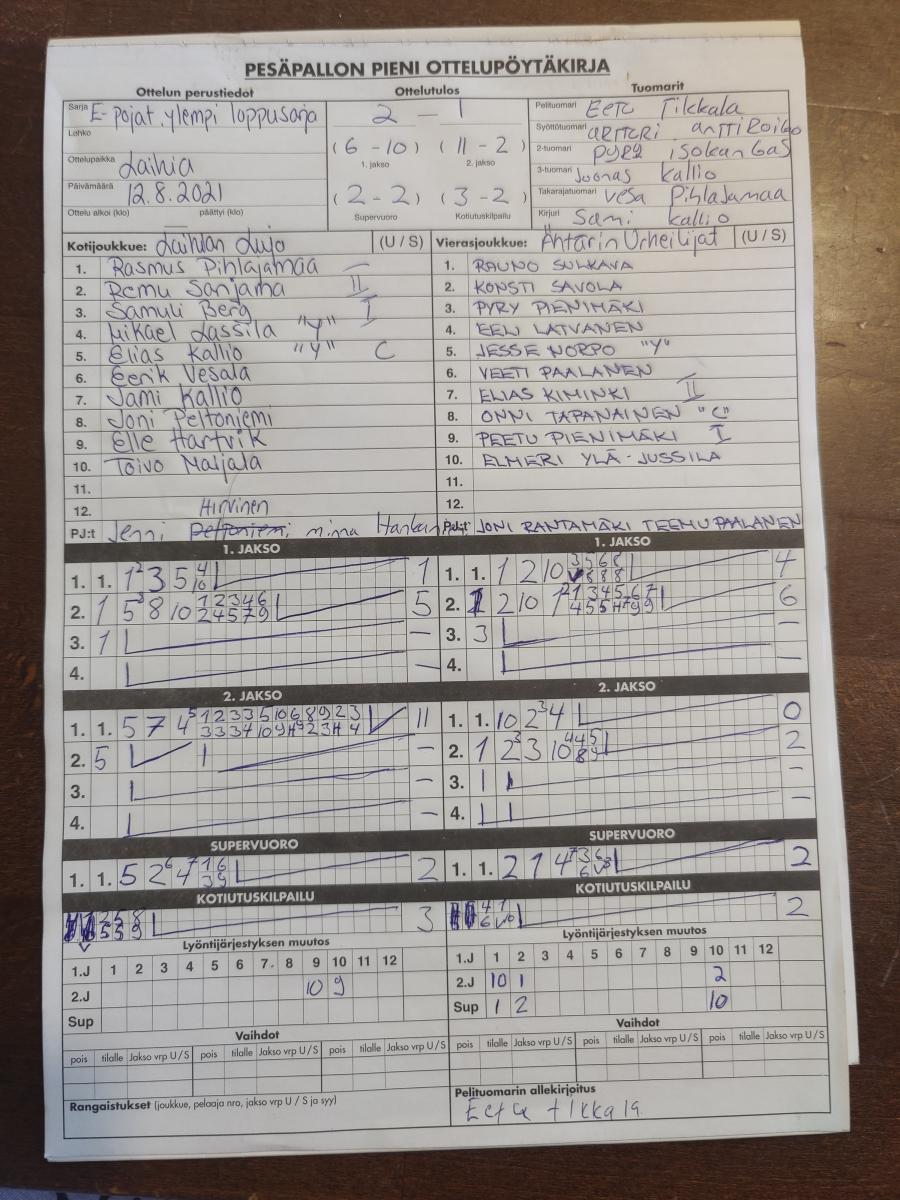 PESÄPALLON PIENI OTTELUPÖYTÄKIRJA
Ottelun perustiedot Ottelutulos Tuomarit
Sarja E-pojat, ylempi loppusarja
Lohko
Ottelupaikka Laihia
Päivämäärä 12.8.2021
Ottelu alkoi (klo) päättyi (klo)
2 - 1
(6-10) (11-2)
1. jakso 2. jakso
(2-2) (3-2)
Supervuoro Kotiutuskilpailu
Pelituomari Eetu Tikkala
Syöttötuomari Antti
2-tuomari
3-tuomari Joonas Kallio
Takarajatuomari Vesa Pihlajamaa
Kirjuri Sami Kallio
Kotijoukkue: Laihian Lujo (U / S)
1. Rasmus Pihlajamaa
2. Remu Sanjama II
3. Samuli Berg I
4. Mikael Lassila "Y"
5. Elias Kallio "Y" C
6. Eerik Vesala
7. Jami Kallio
8. Joni Peltoniemi
9. Elle Hartvik
10. Toivo Maijala
11.
12.
Hirvinen
PJ:t Jenni Peltoniemi minna
Vierasjoukkue: Ähtärin Urheilijat (U / S)
1. RAUNO SULKAVA
2. KONSTI SAVOLA
3. PYRY PIENIMÄKI
4. EELI LATVANEN
5. JESSE NORPO "Y"
6. VEETI PAALANEN
7. ELIAS KIMINKI II
8. ONNI TAPANAINEN "C"
9. PEETU PIENIMÄKI I
10. ELMERI YLÄ-JUSSILA
11.
12.
PJ:t JONI RANTAMÄKI TEEMU PAALANEN
1. JAKSO
1. 1. 1 2 3 5 4 10 1
2. 1 5 3 8 10 1 2 3 4 6 5
2 4 5 7 9
3. 1 —
4. —
1. JAKSO
1. 1. 1 2 10 3 5 6 8 4
8 8 8
2. 2 10 1 6
3. 3 —
4. —
2. JAKSO
1. 1. 5 7 4 5 1 2 3 3 5 10 6 8 9 2 3 11
3 3 3 4 10 9 4 2 3 4 4
2. 5 —
3. —
4. —
2. JAKSO
1. 1. 10 2 3 4 0
2. 1 2 3 3 10 4 4 5 2
8 9
3. 1 —
4. 1 —
SUPERVUORO
1. 1. 5 2 6 4 7 1 6 2
3 9
SUPERVUORO
1. 1. 2 1 4 7 3 6 2
KOTIUTUSKILPAILU
2 5 8 3
5 5 9
KOTIUTUSKILPAILU
4 7 2
6 10
Lyöntijärjestyksen muutos
1.J 1 2 3 4 5 6 7 8 9 10 11 12
2.J 10 9
Sup
Lyöntijärjestyksen muutos
1.J 1 2 3 4 5 6 7 8 9 10 11 12
2.J 10 1 2
Sup 1 2 10
Vaihdot
pois tilalle Jakso vrp U / S pois tilalle Jakso vrp U / S pois tilalle Jakso vrp U / S
Vaihdot
pois tilalle Jakso vrp U / S pois tilalle Jakso vrp U / S pois tilalle Jakso vrp U / S
Rangaistukset (joukkue, pelaaja nro, jakso vrp U / S ja syy)
Pelituomarin allekirjoitus
Eetu tikkala